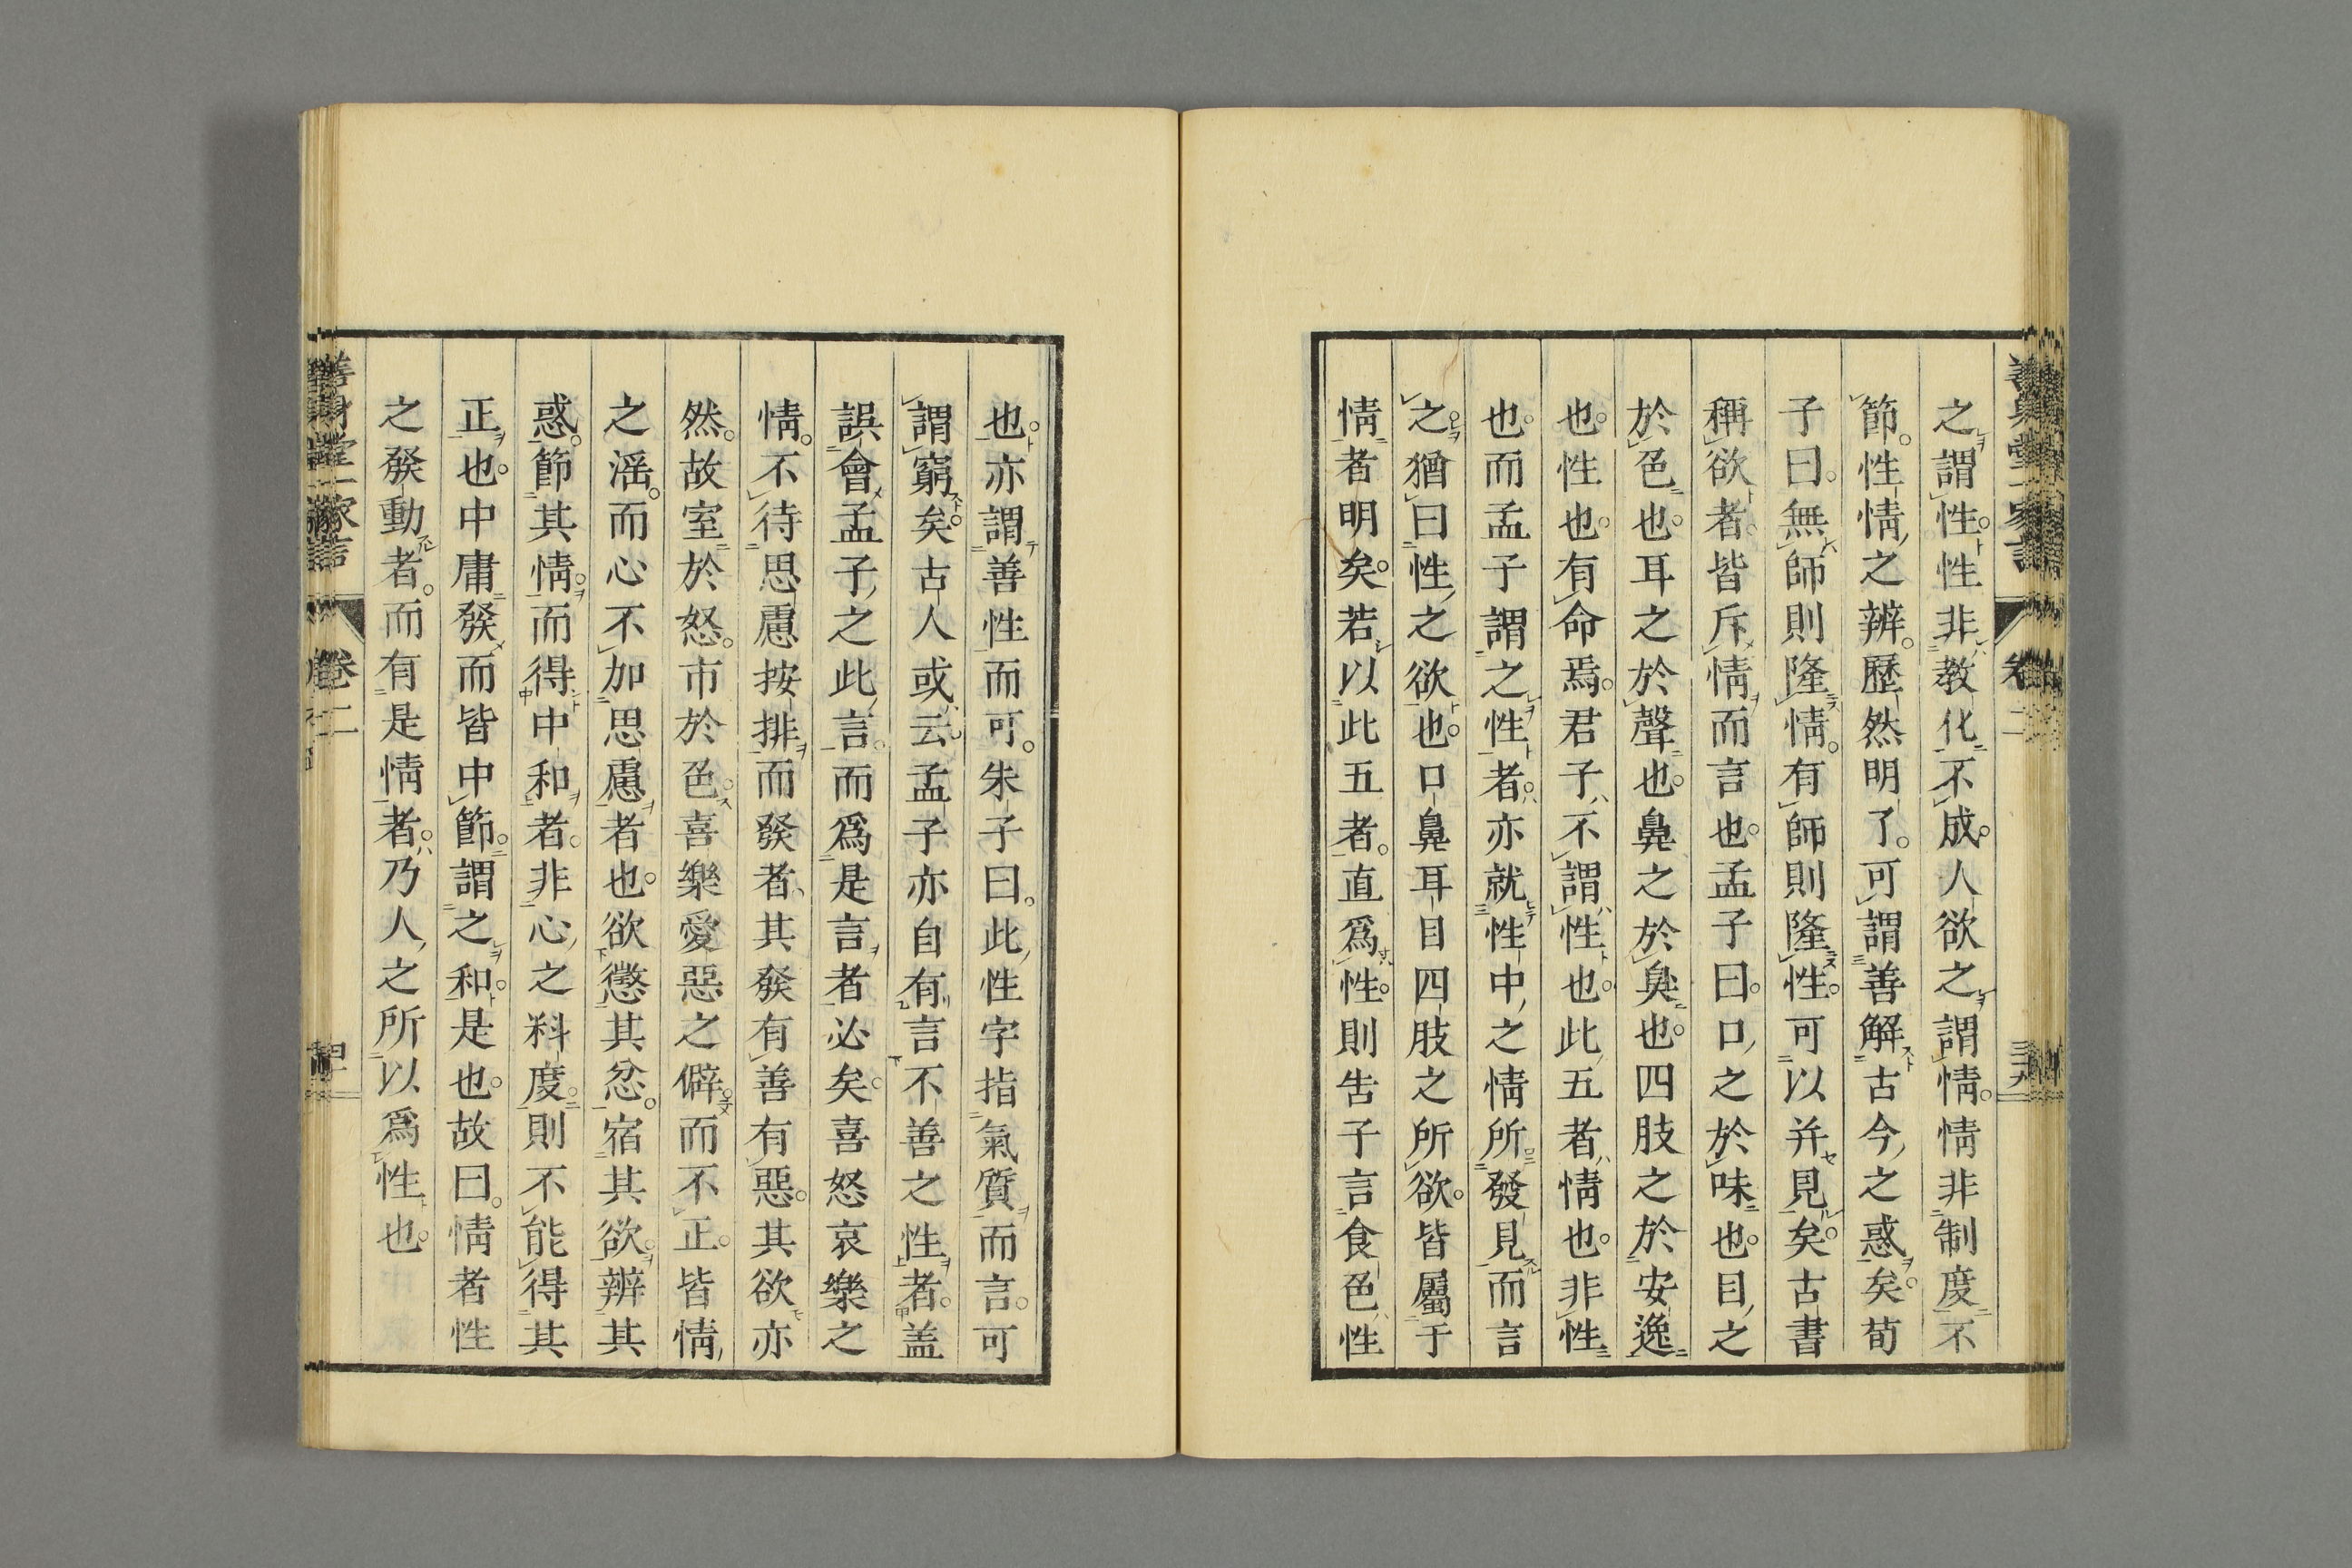 之謂性性非教化不成人欲之謂情情非制度不
節性情之辨歷然明了可謂善解古今之惑矣荀
子曰無師則隆情有師則隆性可以并見矣古書
稱欲者皆斥情而言也孟子曰口之於味也目之
於色也耳之於聲也鼻之於臭也四肢之於安逸
也性也有命焉君子不謂性也此五者情也非性
也而孟子謂之性者亦就性中之情所發見而言
之猶曰性之欲也口鼻耳目四肢之所欲皆屬于
情者明矣若以此五者直爲性則告子言食色性
也亦謂善性而可朱子曰此性字指氣質而言可
謂窮矣古人或云孟子亦自有言不善之性者盖
誤會孟子之此言而爲是言者必矣喜怒哀樂之
情不待思慮按排而發者其發有善有惡其欲亦
然故室於怒市於色喜樂愛惡之僻而不正皆情
之滛而心不加思慮者也欲懲其忿宿其欲辨其
惑節其情而得中和者非心之料度則不能得其
正也中庸發而皆中節謂之和是也故曰情者性
之發動者而有是情者乃人之所以爲性也
卷二